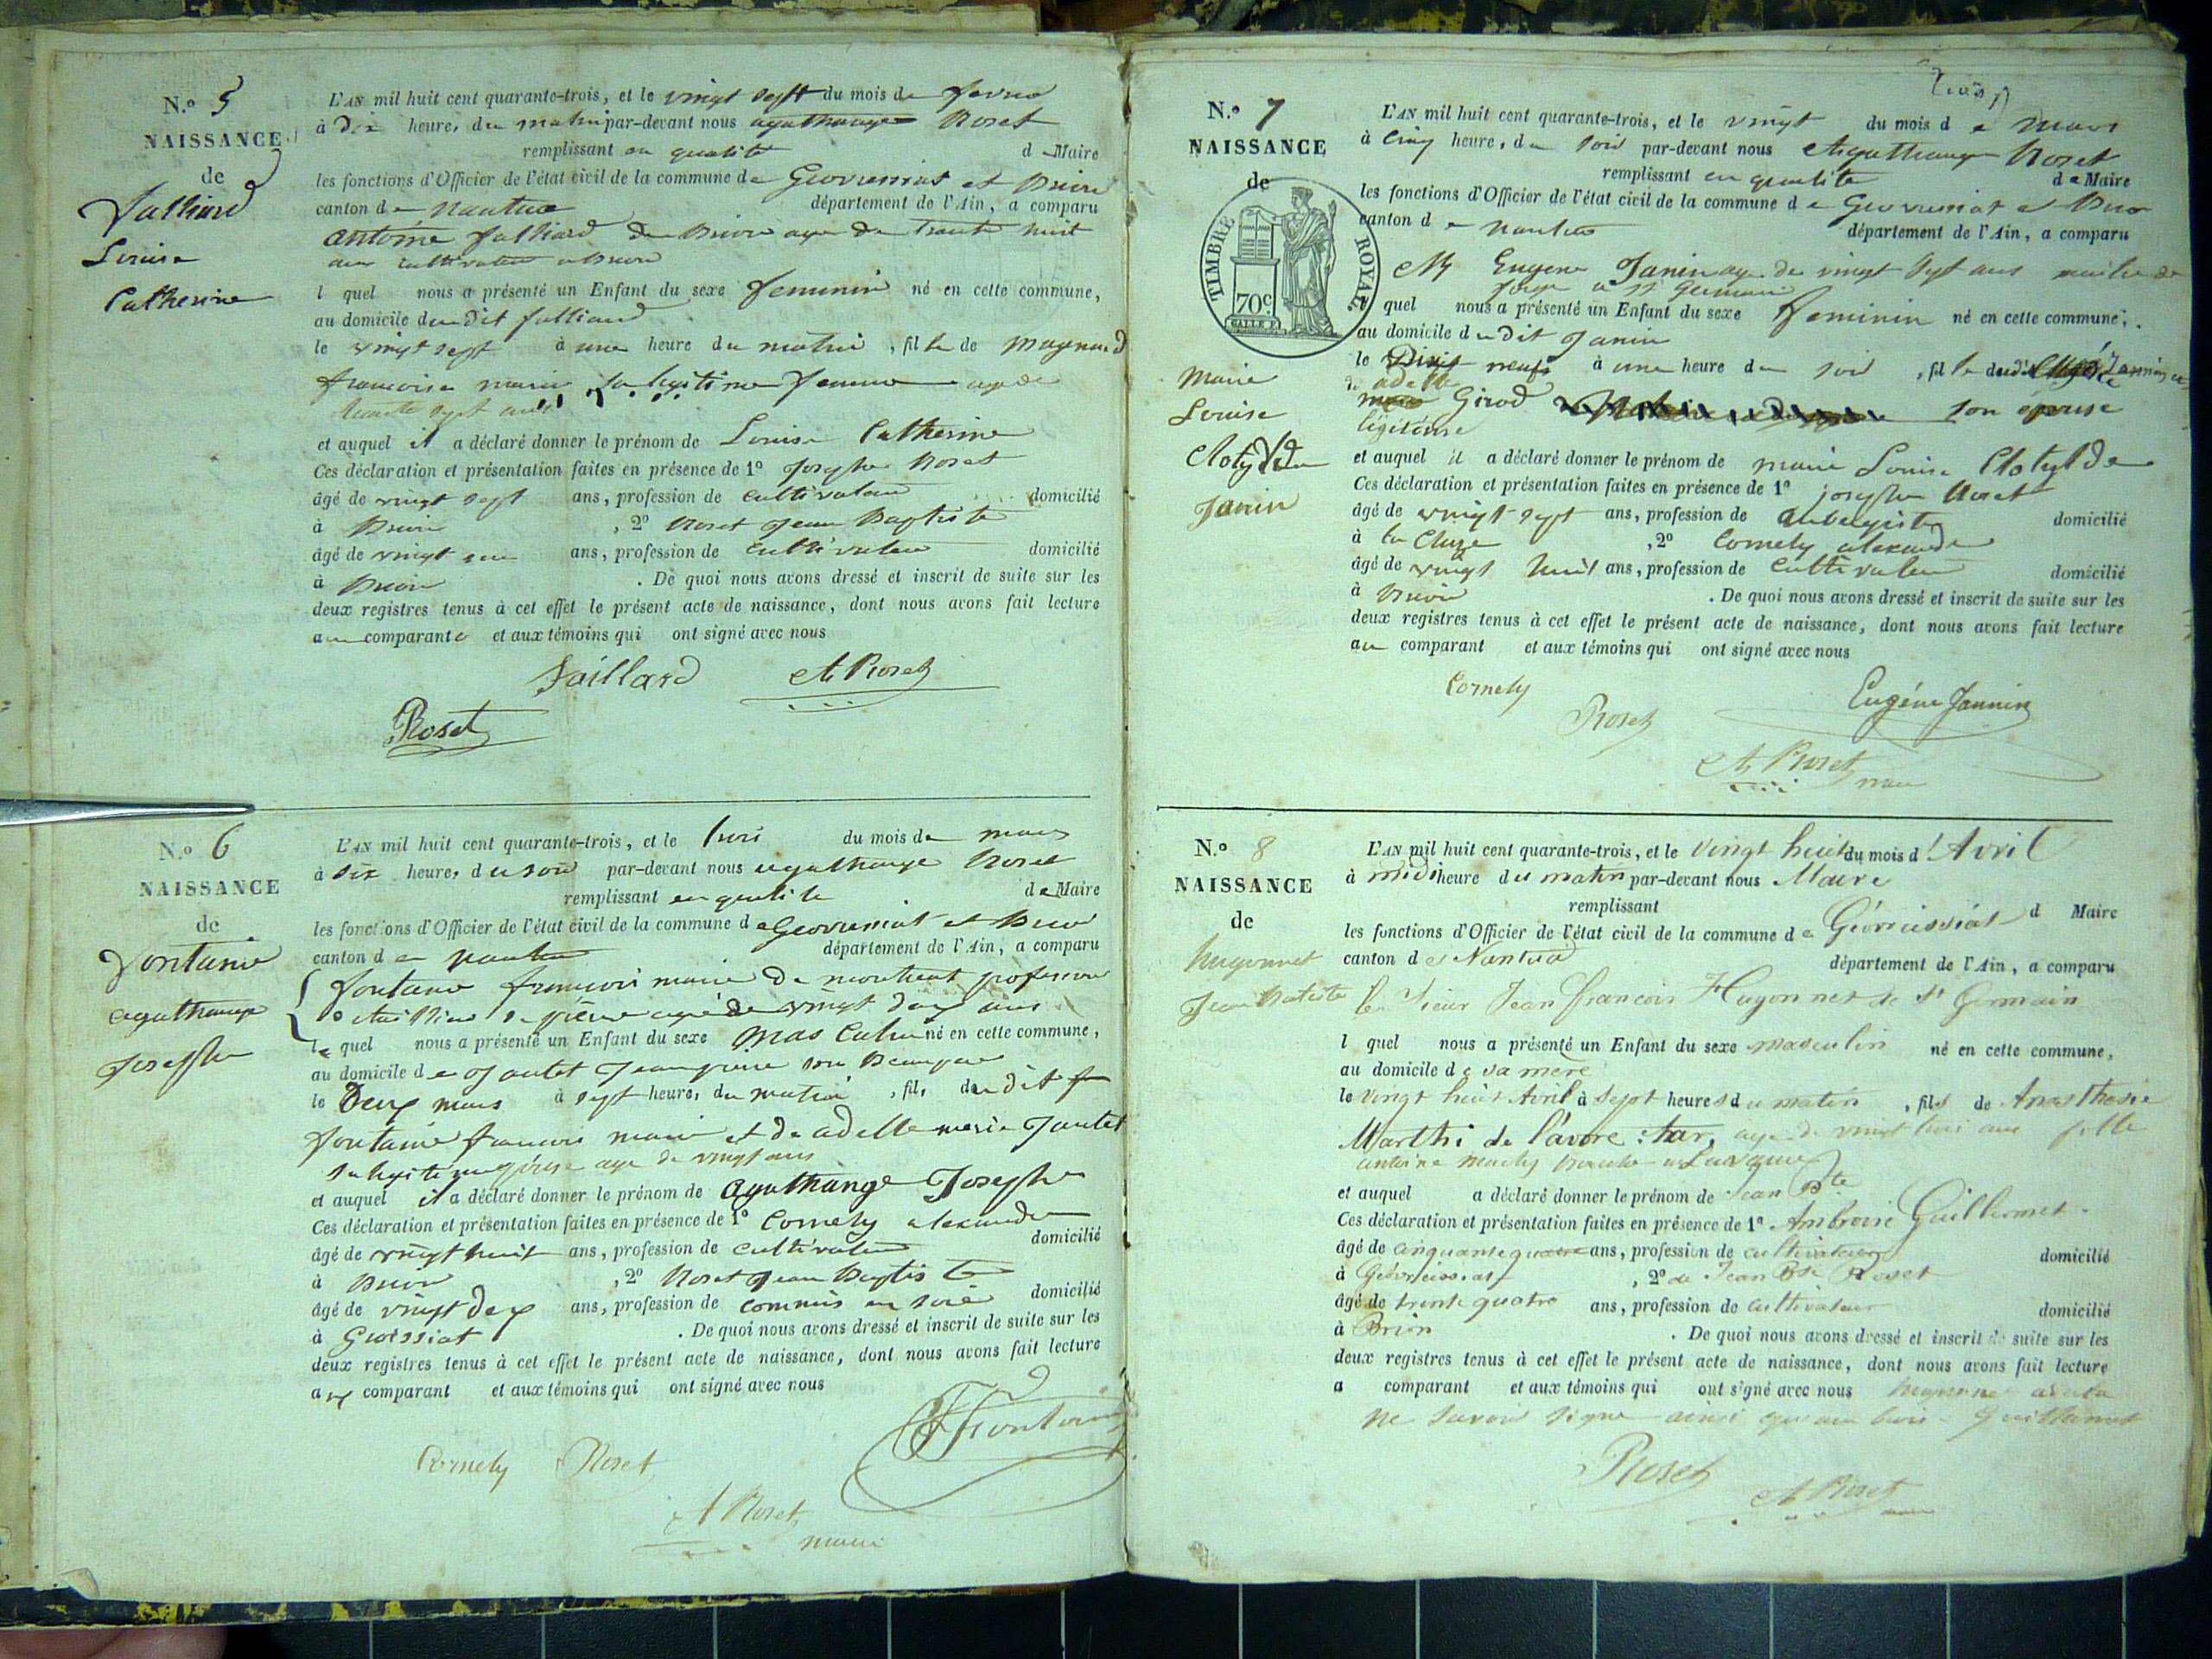 N.o 5
NAISSANCE
de
Louise
Catherine
L'AN mil huit cent quarante-trois, et le vingt sept du mois de
à dix heure, du matin par-devant nous agathange Roset
remplissant en qualité de Maire
les fonctions d'Officier de l'état civil de la commune de Geovreissiat et Brion
canton de Nantua département de l'Ain, a comparu
antoine de Brion age de trente huit
ans cultivateur a Brion
l quel nous a présenté un Enfant du sexe feminin né en cette commune,
au domicile du dit
le vingt sept à une heure du matin, fille de
francoise marie sa legitime femme age de
trente sept ans
et auquel il a déclaré donner le prénom de Louise Catherine
Ces déclaration et présentation faites en présence de 1º Josephe Roset
âgé de vingt sept ans, profession de cultivateur domicilié
à Brion, 2º Roset Jean Baptiste
âgé de vingt ans, profession de cultivateur domicilié
à Brion. De quoi nous avons dressé et inscrit de suite sur les
deux registres tenus à cet effet le présent acte de naissance, dont nous avons fait lecture
au comparant et aux témoins qui ont signé avec nous
Jaillard A Roset
Roset
N.o 6
NAISSANCE
de
fontaine
agathange
Josephe
L'AN mil huit cent quarante-trois, et le trois du mois de mars
à six heure, du soir par-devant nous agathange Roset
remplissant en qualité de Maire
les fonctions d'Officier de l'état civil de la commune de Geovreissiat et Brion
canton de Nantua département de l'Ain, a comparu
fontaine francois marie de profession
de pierre age de vingt ans
le quel nous a présenté un Enfant du sexe masculin né en cette commune,
au domicile de Jantet son
le Deux mars à sept heure, du matin, fils du dit
fontaine francois marie et de adelle marie Jantet
sa legitime épouse age de vingt ans
et auquel il a déclaré donner le prénom de agathange Josephe
Ces déclaration et présentation faites en présence de 1º Cornely alexandre
âgé de vingt huit ans, profession de cultivateur domicilié
à Brion, 2º Roset Jean Baptiste
âgé de vingt ans, profession de commis en soie domicilié
à Groissiat. De quoi nous avons dressé et inscrit de suite sur les
deux registres tenus à cet effet le présent acte de naissance, dont nous avons fait lecture
au comparant et aux témoins qui ont signé avec nous
Cornely Roset
A Roset
maire
N.o 7
NAISSANCE
de
TIMBRE ROYAL
70c.
Marie
Louise
Clotylde
Janin
L'AN mil huit cent quarante-trois, et le vingt du mois de Mars
à cinq heure, du soir par-devant nous Agathange Roset
remplissant en qualité de Maire
les fonctions d'Officier de l'état civil de la commune de Geovreissiat et Brion
canton de Nantua département de l'Ain, a comparu
Mr Eugene Janin age de vingt sept ans maitre de
forge a St Germain
l quel nous a présenté un Enfant du sexe feminin né en cette commune,
au domicile du dit Janin
le neuf à une heure du soir, fille dudit
de adelle
Girod son épouse
légitime
et auquel il a déclaré donner le prénom de marie Louise Clotylde
Ces déclaration et présentation faites en présence de 1º josephe Roset
âgé de vingt sept ans, profession de aubergiste domicilié
à la Cluze, 2º Cornely alexandre
âgé de vingt huit ans, profession de cultivateur domicilié
à Brion. De quoi nous avons dressé et inscrit de suite sur les
deux registres tenus à cet effet le présent acte de naissance, dont nous avons fait lecture
au comparant et aux témoins qui ont signé avec nous
Cornely
Roset
Eugène Jannin
A Roset
maire
N.o 8
NAISSANCE
de
hugonnet
Jean Batiste
L'AN mil huit cent quarante-trois, et le Vingt huit du mois d'Avril
à midi heure du matin par-devant nous Maire
remplissant d Maire
les fonctions d'Officier de l'état civil de la commune de Géovreissiat
canton de Nantua département de l'Ain, a comparu
le Sieur Jean francois Hugonnet de St Germain
l quel nous a présenté un Enfant du sexe masculin né en cette commune,
au domicile de sa mere
le vingt huit Avril à Sept heures du matin, fils de Anasthasie
Marthi de age de vingt ans fille
antoine
et auquel a déclaré donner le prénom de Jean Bte
Ces déclaration et présentation faites en présence de 1º Ambroise Guillermet
âgé de cinquante quatre ans, profession de cultivateur domicilié
à Géovreissiat, 2º de Jean Bte Roset
âgé de trente quatre ans, profession de cultivateur domicilié
à Brion. De quoi nous avons dressé et inscrit de suite sur les
deux registres tenus à cet effet le présent acte de naissance, dont nous avons fait lecture
a comparant et aux témoins qui ont signé avec nous
ne savoir signe ainsi que
Roset
A Roset